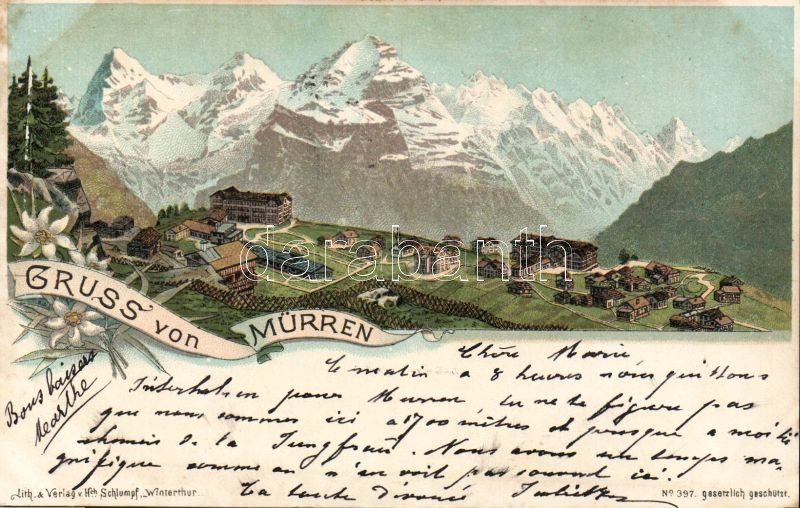 darabanth
GRUSS von
MÜRREN
Chère Marie
Ce matin à 8 heures nous quittons
Interlaken pour Murren, tu ne te figure pas
que nous sommes ici a 1700 mètres et presque a moitié
chemin de la Jungfrau. Nous avons un temps ma-
gnifique comme on n'en voit pas souvent ici.
Ta toute dévouée Juliette
Bons baisers
Marthe
Lith. & Verlag v. Hch Schlumpf, Winterthur.
No 397. gesetzlich geschützt.